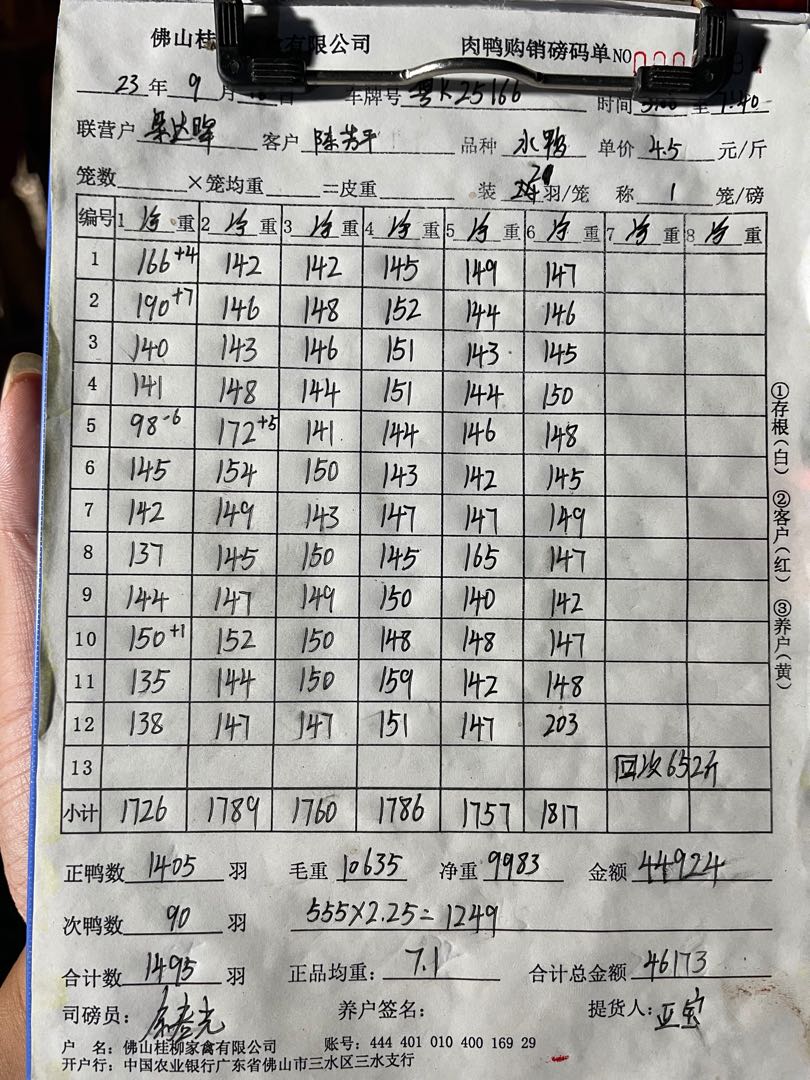 佛山桂 家禽有限公司 肉鸭购销磅码单 NO
23 年 9 月 日 车牌号 粤K25166 时间 至 7:40
联营户 客户 陈芳平 品种 水鸭 单价 4.5 元/斤
笼数 ×笼均重 =皮重 装 20 羽/笼 称 1 笼/磅
编号 1 净 重 2 净 重 3 净 重 4 净 重 5 净 重 6 净 重 7 净 重 8 净 重
1 166+4 142 142 145 149 147
2 190+7 146 148 152 144 146
3 140 143 146 151 143 145
4 141 148 144 151 144 150
5 98-6 172+5 141 144 146 148
6 145 154 150 143 142 145
7 142 149 143 147 147 149
8 137 145 150 145 165 147
9 144 147 149 150 140 142
10 150+1 152 150 148 148 147
11 135 144 150 159 142 148
12 138 147 147 151 147 203
13 回次652斤
小计 1726 1789 1760 1786 1757 1817
正鸭数 1405 羽 毛重 10635 净重 9983 金额 44924
次鸭数 90 羽 555×2.25=1249
合计数 1495 羽 正品均重: 7.1 合计总金额 46173
司磅员: 养户签名: 提货人: 亚宝
户 名: 佛山桂柳家禽有限公司 账号: 444 401 010 400 169 29
开户行: 中国农业银行广东省佛山市三水区三水支行
①存根(白) ②客户(红) ③养户(黄)